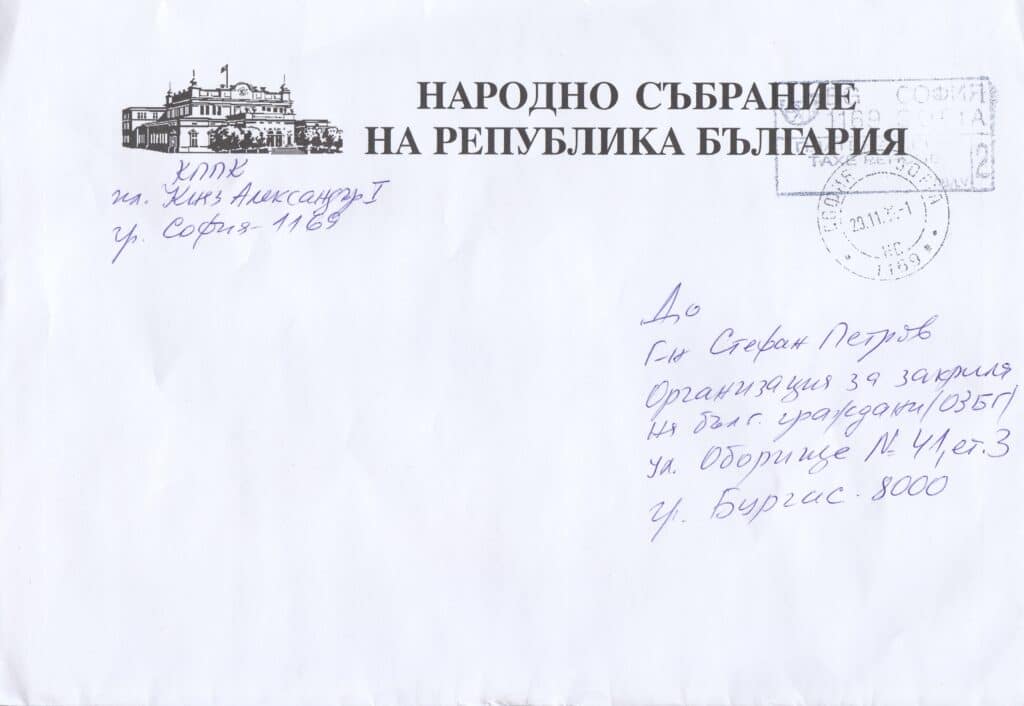 НАРОДНО СЪБРАНИЕ
НА РЕПУБЛИКА БЪЛГАРИЯ
BG СОФИЯ
1169 SOFIA
TAXE
2
СОФИЯ
29.11
НС
1169
КППК
пл. Княз Александър I
гр. София - 1169
До
Г-н Стефан Петров
Организация за закрила
на бълг. граждани (ОЗБГ)
ул. Оборище № 41, ет. 3
гр. Бургас - 8000